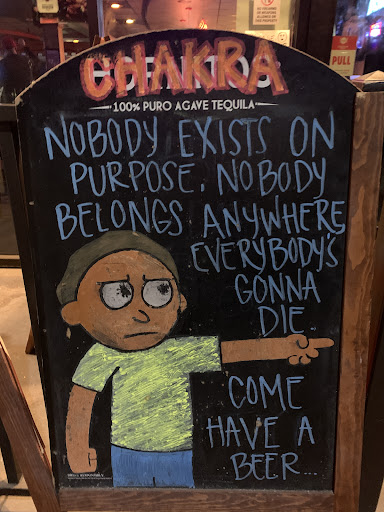 CHAKRA
100% PURO AGAVE TEQUILA
NOBODY EXISTS ON
PURPOSE. NOBODY
BELONGS ANYWHERE
EVERYBODY'S
GONNA
DIE
COME
HAVE A
BEER...
PULL